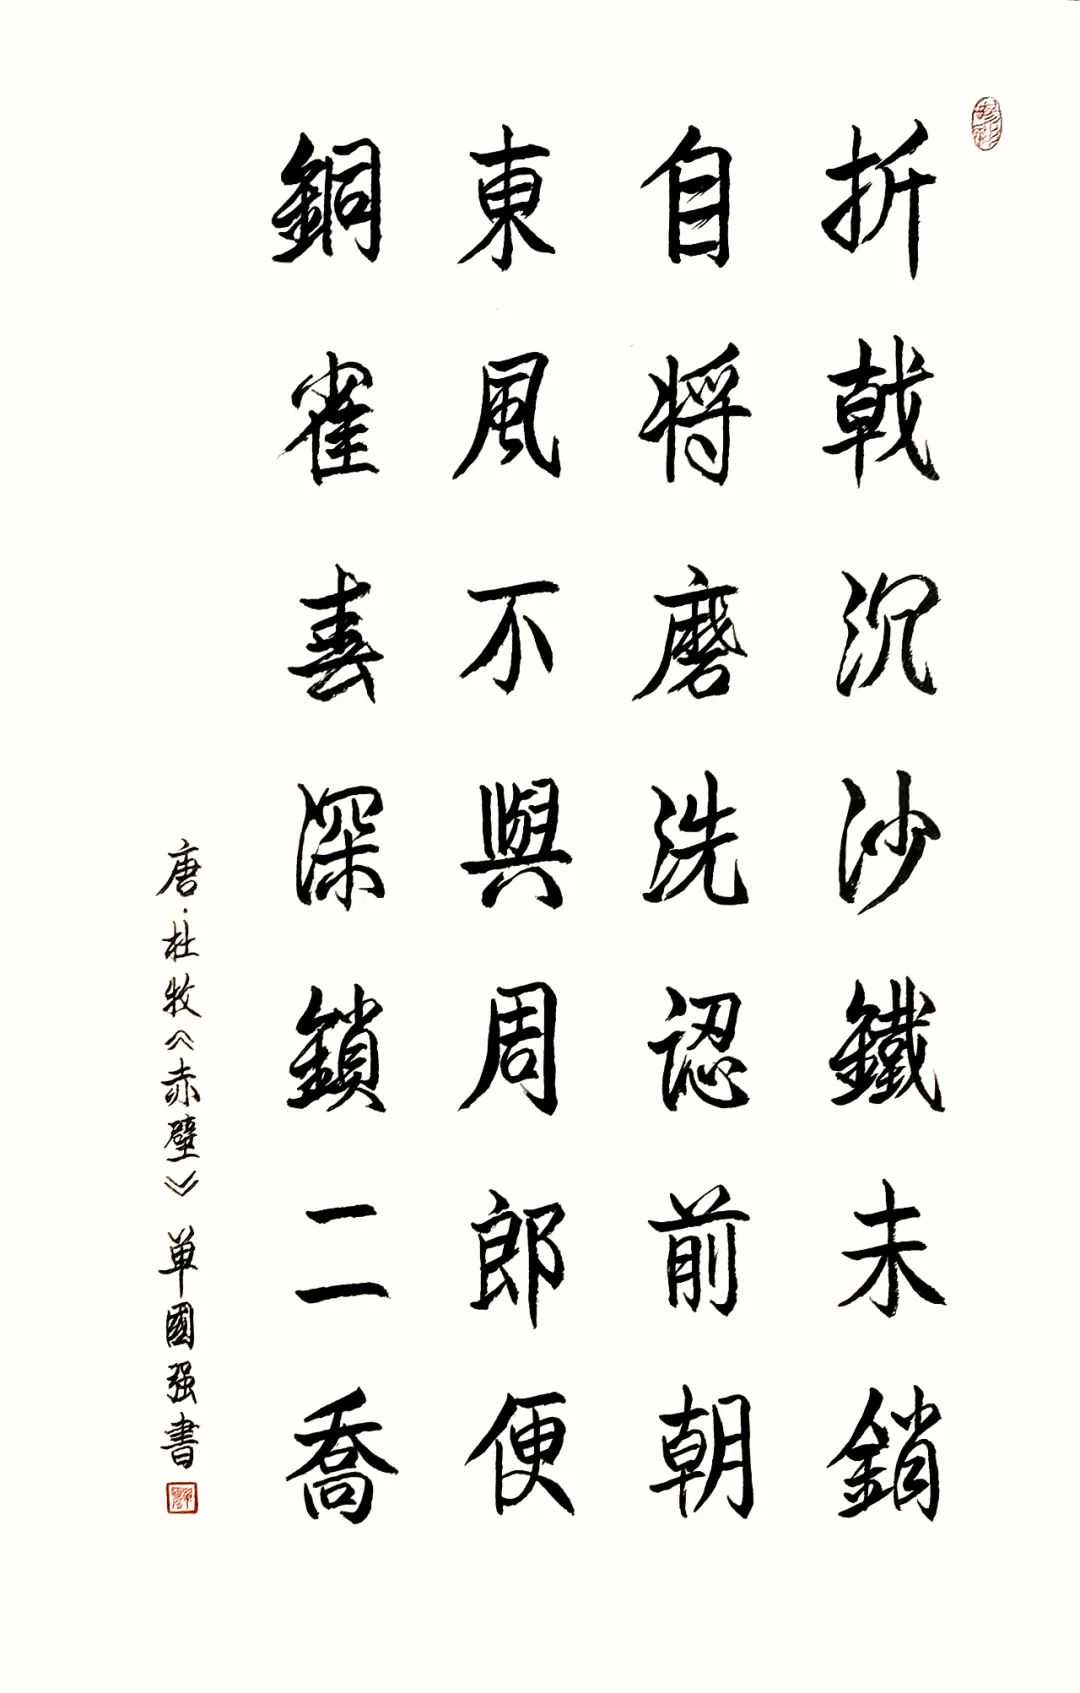 折戟沉沙鐵未銷
自将磨洗認前朝
東風不與周郎便
銅雀春深鎖二喬
唐·杜牧《赤壁》 单國强書